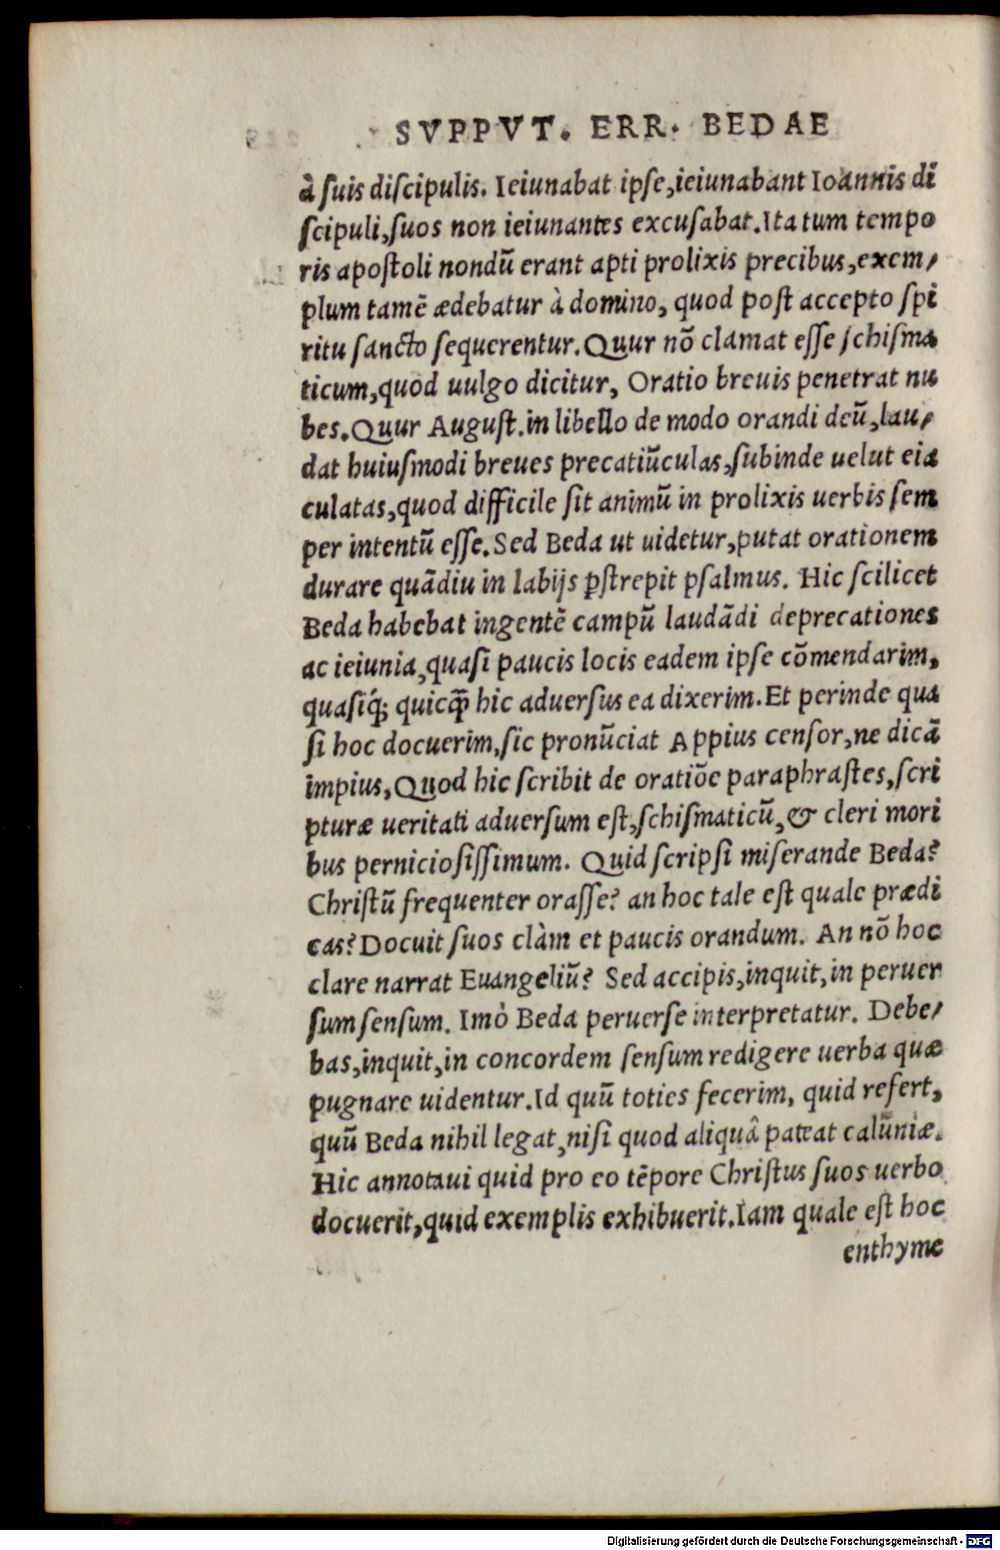 SVPPVT. ERR. BEDAE
à ſuis diſcipulis. Ieiunabat ipſe,ieiunabant Ioannis di
ſcipuli,ſuos non ieiunantes excuſabat.Ita tum tempo
ris apoſtoli nondũ erant apti prolixis precibus,exem/
plum tamẽ ædebatur à domino, quod poſt accepto ſpi
ritu ſancto ſequerentur.Quur nõ clamat eſſe ſchiſma
ticum,quod uulgo dicitur, Oratio breuis penetrat nu
bes.Quur Auguſt.in libello de modo orandi deũ,lau/
dat huiuſmodi breues precatiũculas,ſubinde uelut eia
culatas,quod difficile ſit animũ in prolixis uerbis ſem
per intentũ eſſe.Sed Beda ut uidetur,putat orationem
durare quãdiu in labijs ꝑſtrepit pſalmus. Hic ſcilicet
Beda habebat ingentẽ campũ laudãdi deprecationes
ac ieiunia,quaſi paucis locis eadem ipſe cõmendarim,
quaſiq́; quicꝙ̃ hic aduerſus ea dixerim.Et perinde qua
ſi hoc docuerim,ſic pronũciat Appius cenſor,ne dicã
impius,Quod hic ſcribit de oratiõe paraphraſtes,ſcri
pturæ ueritati aduerſum eſt,ſchiſmaticũ,& cleri mori
bus pernicioſiſſimum. Quid ſcripſi miſerande Beda?
Chriſtũ frequenter oraſſe? an hoc tale eſt quale prædi
cas?Docuit ſuos clàm et paucis orandum. An nõ hoc
clare narrat Euangeliũ? Sed accipis,inquit,in peruer
ſum ſenſum. Imò Beda peruerſe interpretatur. Debe/
bas,inquit,in concordem ſenſum redigere uerba quæ
pugnare uidentur.Id quũ toties fecerim, quid refert,
quũ Beda nihil legat,niſi quod aliquâ pateat calũniæ.
Hic annotaui quid pro eo tẽpore Chriſtus ſuos uerbo
docuerit,quid exemplis exhibuerit.Iam quale eſt hoc
enthyme
Digitalisierung gefördert durch die Deutsche Forschungsgemeinschaft - DFG